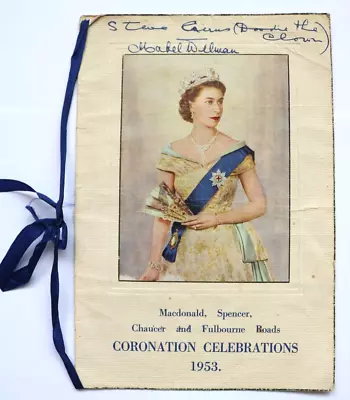 (Doodie the
Clown)
Mabel Wellman
Macdonald, Spencer,
Chaucer and Fulbourne Roads
CORONATION CELEBRATIONS
1953.